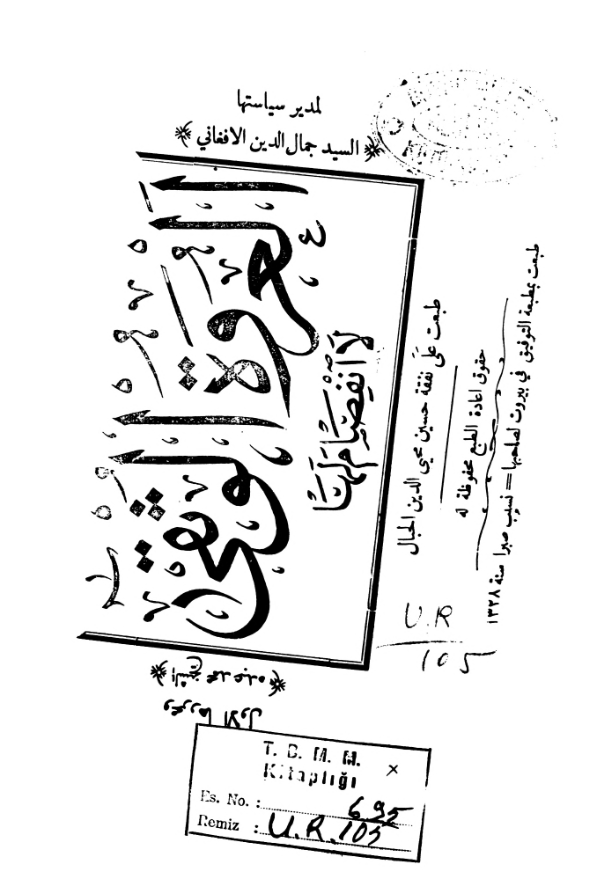 لمدير سياستها
السيد جمال الدين الافغاني
العروة الوثقى
لا انفصام لها
ومحررها الاول
الشيخ محمد عبده
طبعت على نفقة حسين محيي الدين الحبال
حقوق اعادة الطبع محفوظة له
طبعت بمطبعة التوفيق في بيروت لصاحبها = نسيب صبرا سنة ١٣٢٨
U.R
105
T. B. M. M.
Kitaplığı
Es. No. : 695
Remiz : U.R.105